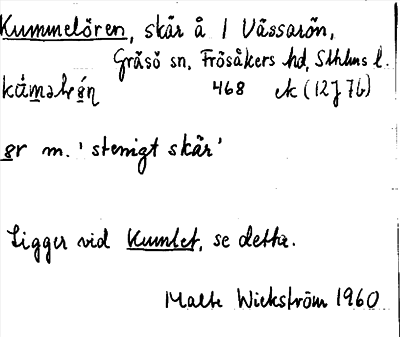 Kummelören, skär å / Vässarön,
Gräsö sn, Frösåkers hd, Sthlms l.
468 ek (12J7b)
ør m. 'stenigt skär'
Ligger vid Kumlet, se detta.
Malte Wickström 1960